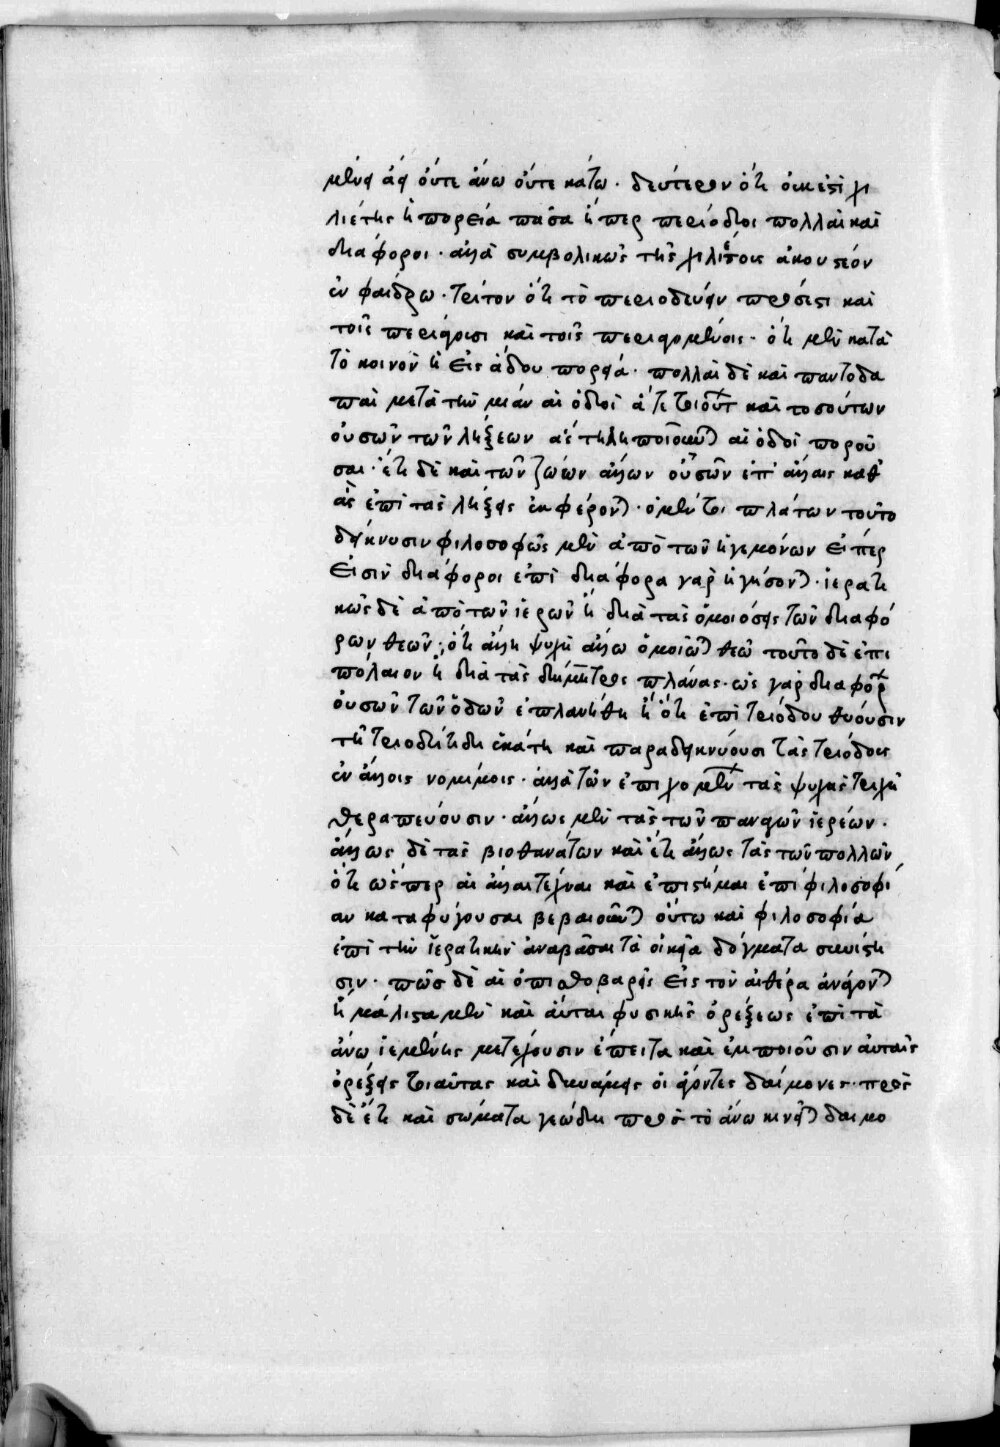 μένει ἀεὶ οὔτε ἄνω οὔτε κάτω. δεύτερον ὅτι οὐκ ἔστι χι
λιέτης ἡ πορεία πᾶσα ἥπερ περιόδιοι πολλαὶ καὶ
διάφοροι. ἀλλὰ συμβολικῶς τῆς χιλιέτους ἀκουστέον
ἐν φαίδρω. τρίτον ὅτι τὸ περιοδεύειν πρόσεστι καὶ
τοῖς περιάγουσι καὶ τοῖς περιαγομένοις. ὅτι μὲν κατὰ
τὸ κοινὸν ἡ εἰς ἅδου πορεία. πολλαὶ δὲ καὶ παντοδα
παὶ μετὰ τὴν μίαν αἱ ὁδοὶ ἅτε τοιούτων καὶ τοσούτων
οὐσῶν τῶν λήξεων ἃς τηλεποιοῦνται αἱ ὁδοὶ ποροῦ
σαι. ἔτι δὲ καὶ τῶν ζώων ἄλλων οὐσῶν ἐπ' ἄλλαις καθ'
ἃς ἐπὶ τὰς λήξεις ἐκφέρονται. ὁ μέντοι πλάτων τοῦτο
δείκνυσιν φιλοσοφῶς μὲν ἀπὸ τῶν ἡγεμόνων εἴπερ
εἰσὶν διάφοροι ἐπὶ διάφορα γὰρ ἡγήσονται. ἱερατι
κῶς δὲ ἀπὸ τῶν ἱερῶν ἢ διὰ τὰς ὁμοιώσεις τῶν διαφό
ρων θεῶν; ὅτι ἄλλη ψυχὴ ἄλλω ὁμοιῶται θεῶ τοῦτο δὲ ἐπι
πόλαιον ἢ διὰ τὰς δήμητρος πλάνας. ὡς γὰρ διαφόρων
οὐσῶν τῶν ὁδῶν ἐπλανήθη ἢ ὅτι ἐπὶ τριόδου θύουσιν
τῇ τριοδίτιδι ἑκάτη καὶ παραδεικνύουσι τὰς τριόδους
ἐν ἄλλοις νομίμοις. ἀλλὰ τῶν ἐπιχομένων τὰς ψυχὰς τριχῆ
θεραπεύουσιν. ἄλλως μὲν τὰς τῶν παναγῶν ἱερέων.
ἄλλως δὲ τὰς βιοθανάτων καὶ ἔτι ἄλλως τὰς τῶν πολλῶν
ὅτι ὥσπερ αἱ ἄλλαι τέχναι καὶ ἐπιστῆμαι ἐπὶ φιλοσοφί
αν καταφυγοῦσαι βεβαιοῦνται οὕτω καὶ φιλοσοφία
ἐπὶ τὴν ἱερατικὴν ἀναβᾶσαι τὰ οἰκεῖα δόγματα συνίστη
σιν. πῶς δὲ αἱ ὀπισθοβαρεῖς εἰς τὸν αἰθέρα ἀνάγονται
ἢ μάλιστα μὲν καὶ αὗται φυσικῆς ὀρέξεως ἐπὶ τὰ
ἄνω ἱεμένης μετέχουσιν ἔπειτα καὶ ἐμποιοῦσιν αὐταῖς
ὀρέξεις τοιαύτας καὶ δυνάμεις οἱ ἄγοντες δαίμονες. πρὸς
δὲ ἔτι καὶ σώματα γεώδη πρὸς τὸ ἄνω κινεῖται δαιμο